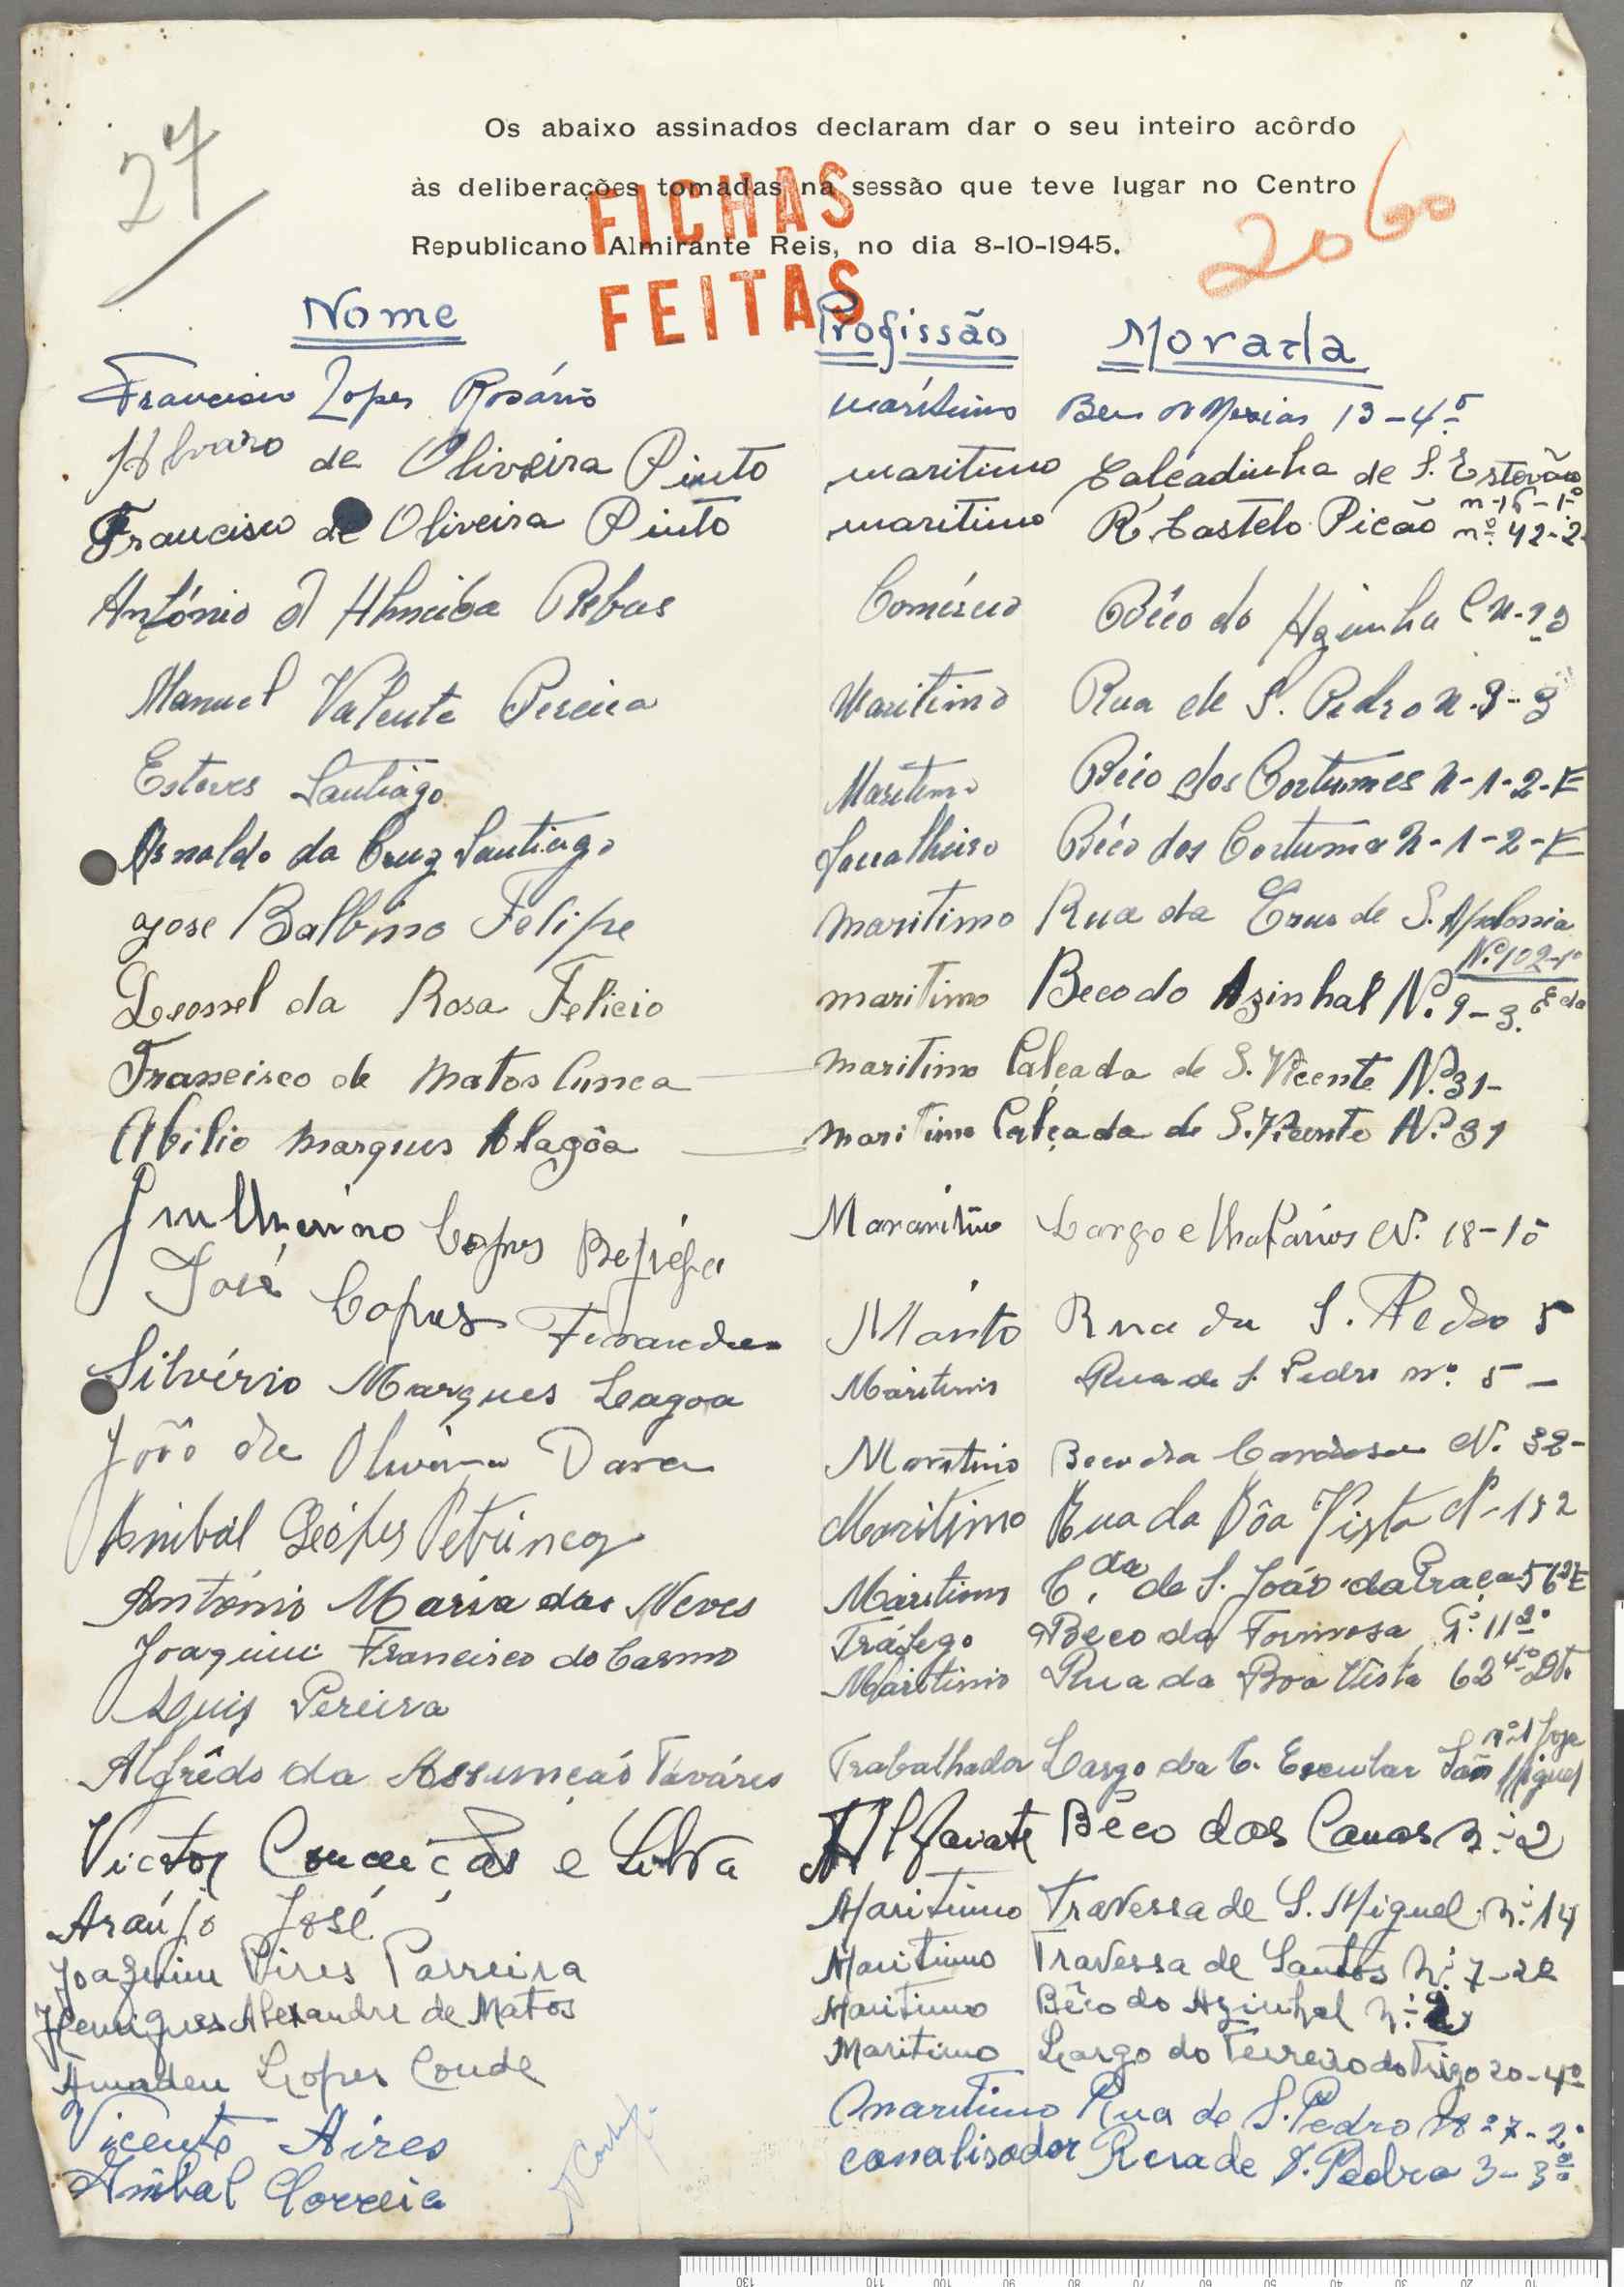 27
Os abaixo assinados declaram dar o seu inteiro acôrdo
às deliberações tomadas na sessão que teve lugar no Centro
Republicano Almirante Reis, no dia 8-10-1945.
FICHAS
FEITAS
2060
Nome Profissão Morada
Francisco Lopes Rosário marítimo 13-4º
Alvaro de Oliveira Pinto maritimo Calçadinha de S. Estevão
Francisco de Oliveira Pinto maritimo R. Castelo Picão nº 42-2
António d' Almeida Comércio Bêco do
Manuel Valente Pereira Maritimo Rua de S. Pedro N.
Esteves Santiago Maritimo Béco dos Cortumes N-1-2-E
Arnaldo da Cruz Santiago Béco dos N-1-2-E
Jose Balbino Felipe maritimo Rua da Crus de S. Apolonia
Nº 102-1º
Leonel da Rosa Felicio maritimo Beco do Azinhal Nº 9-3.
Francisco de Matos maritimo Calçada de S. Vicente Nº 31-
Abilio Marques Alagôa maritimo Calçada de S. Vicente Nº 31
Lopes Largo N. 18-1º
José Lopes Rua de S. Pedro 5
Silvério Marques Lagoa Maritimo Rua de S. Pedro nº 5 -
João de Oliveira Maritimo N. 32-
Anibal Maritimo Rua da Bôa Vista Nº 152
António Maria das Neves Maritimo C.da de S. João da Praça
Joaquim Francisco do Carmo Tráfego Beco da Formosa
Luis Pereira Maritimo Rua da Boa Vista 62 4º Dt.
Alfrêdo da Assumção Taváres Trabalhador Largo da E. Escular São Miguel
nº 1 Loja
Victor Conceição e Silva Alfaiate Bêco das Canas nº 2
Araújo José Maritimo Travessa de S. Miguel nº 14
Joaquim Pires Parreira Maritimo Travessa de Santos nº 7-
Henriques Alexandre de Matos Maritimo Bêco do Azinhal nº
Amadeu Lopes Conde Maritimo Largo do Terreiro do Trigo 20-4º
Vicente Aires maritimo Rua de S. Pedro nº 27-2º
Anibal Correia canalisador Rua de S. Pedro 3-3º